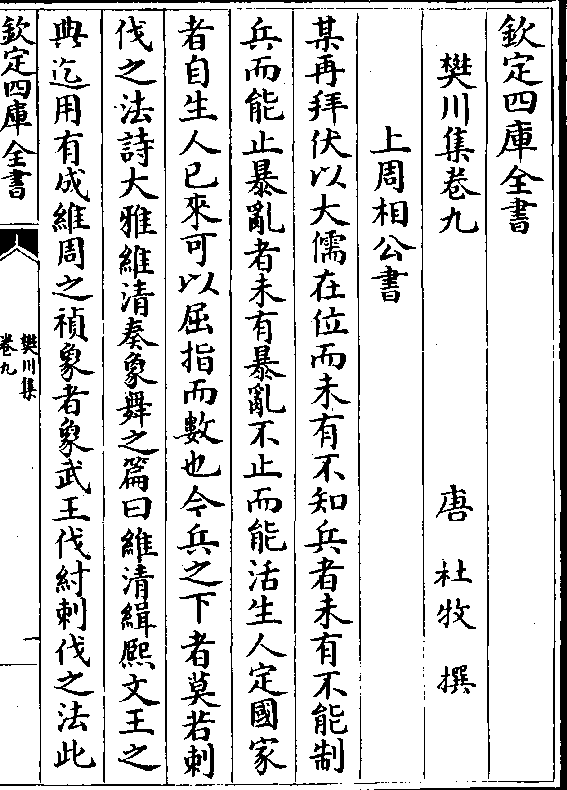 欽定四庫全書
樊川集卷九
唐 杜牧 撰
上周相公書
某再拜伏以大儒在位而未有不知兵者未有不能制
兵而能止暴亂者未有暴亂不止而能活生人定國家
者自生人已來可以屈指而數也今兵之下者莫若刺
伐之法詩大雅維清奏象舞之篇曰維清緝熈文王之
典迄用有成維周之禎象者象武王伐紂刺伐之法此
欽定四庫全書
樊川集
卷九
一